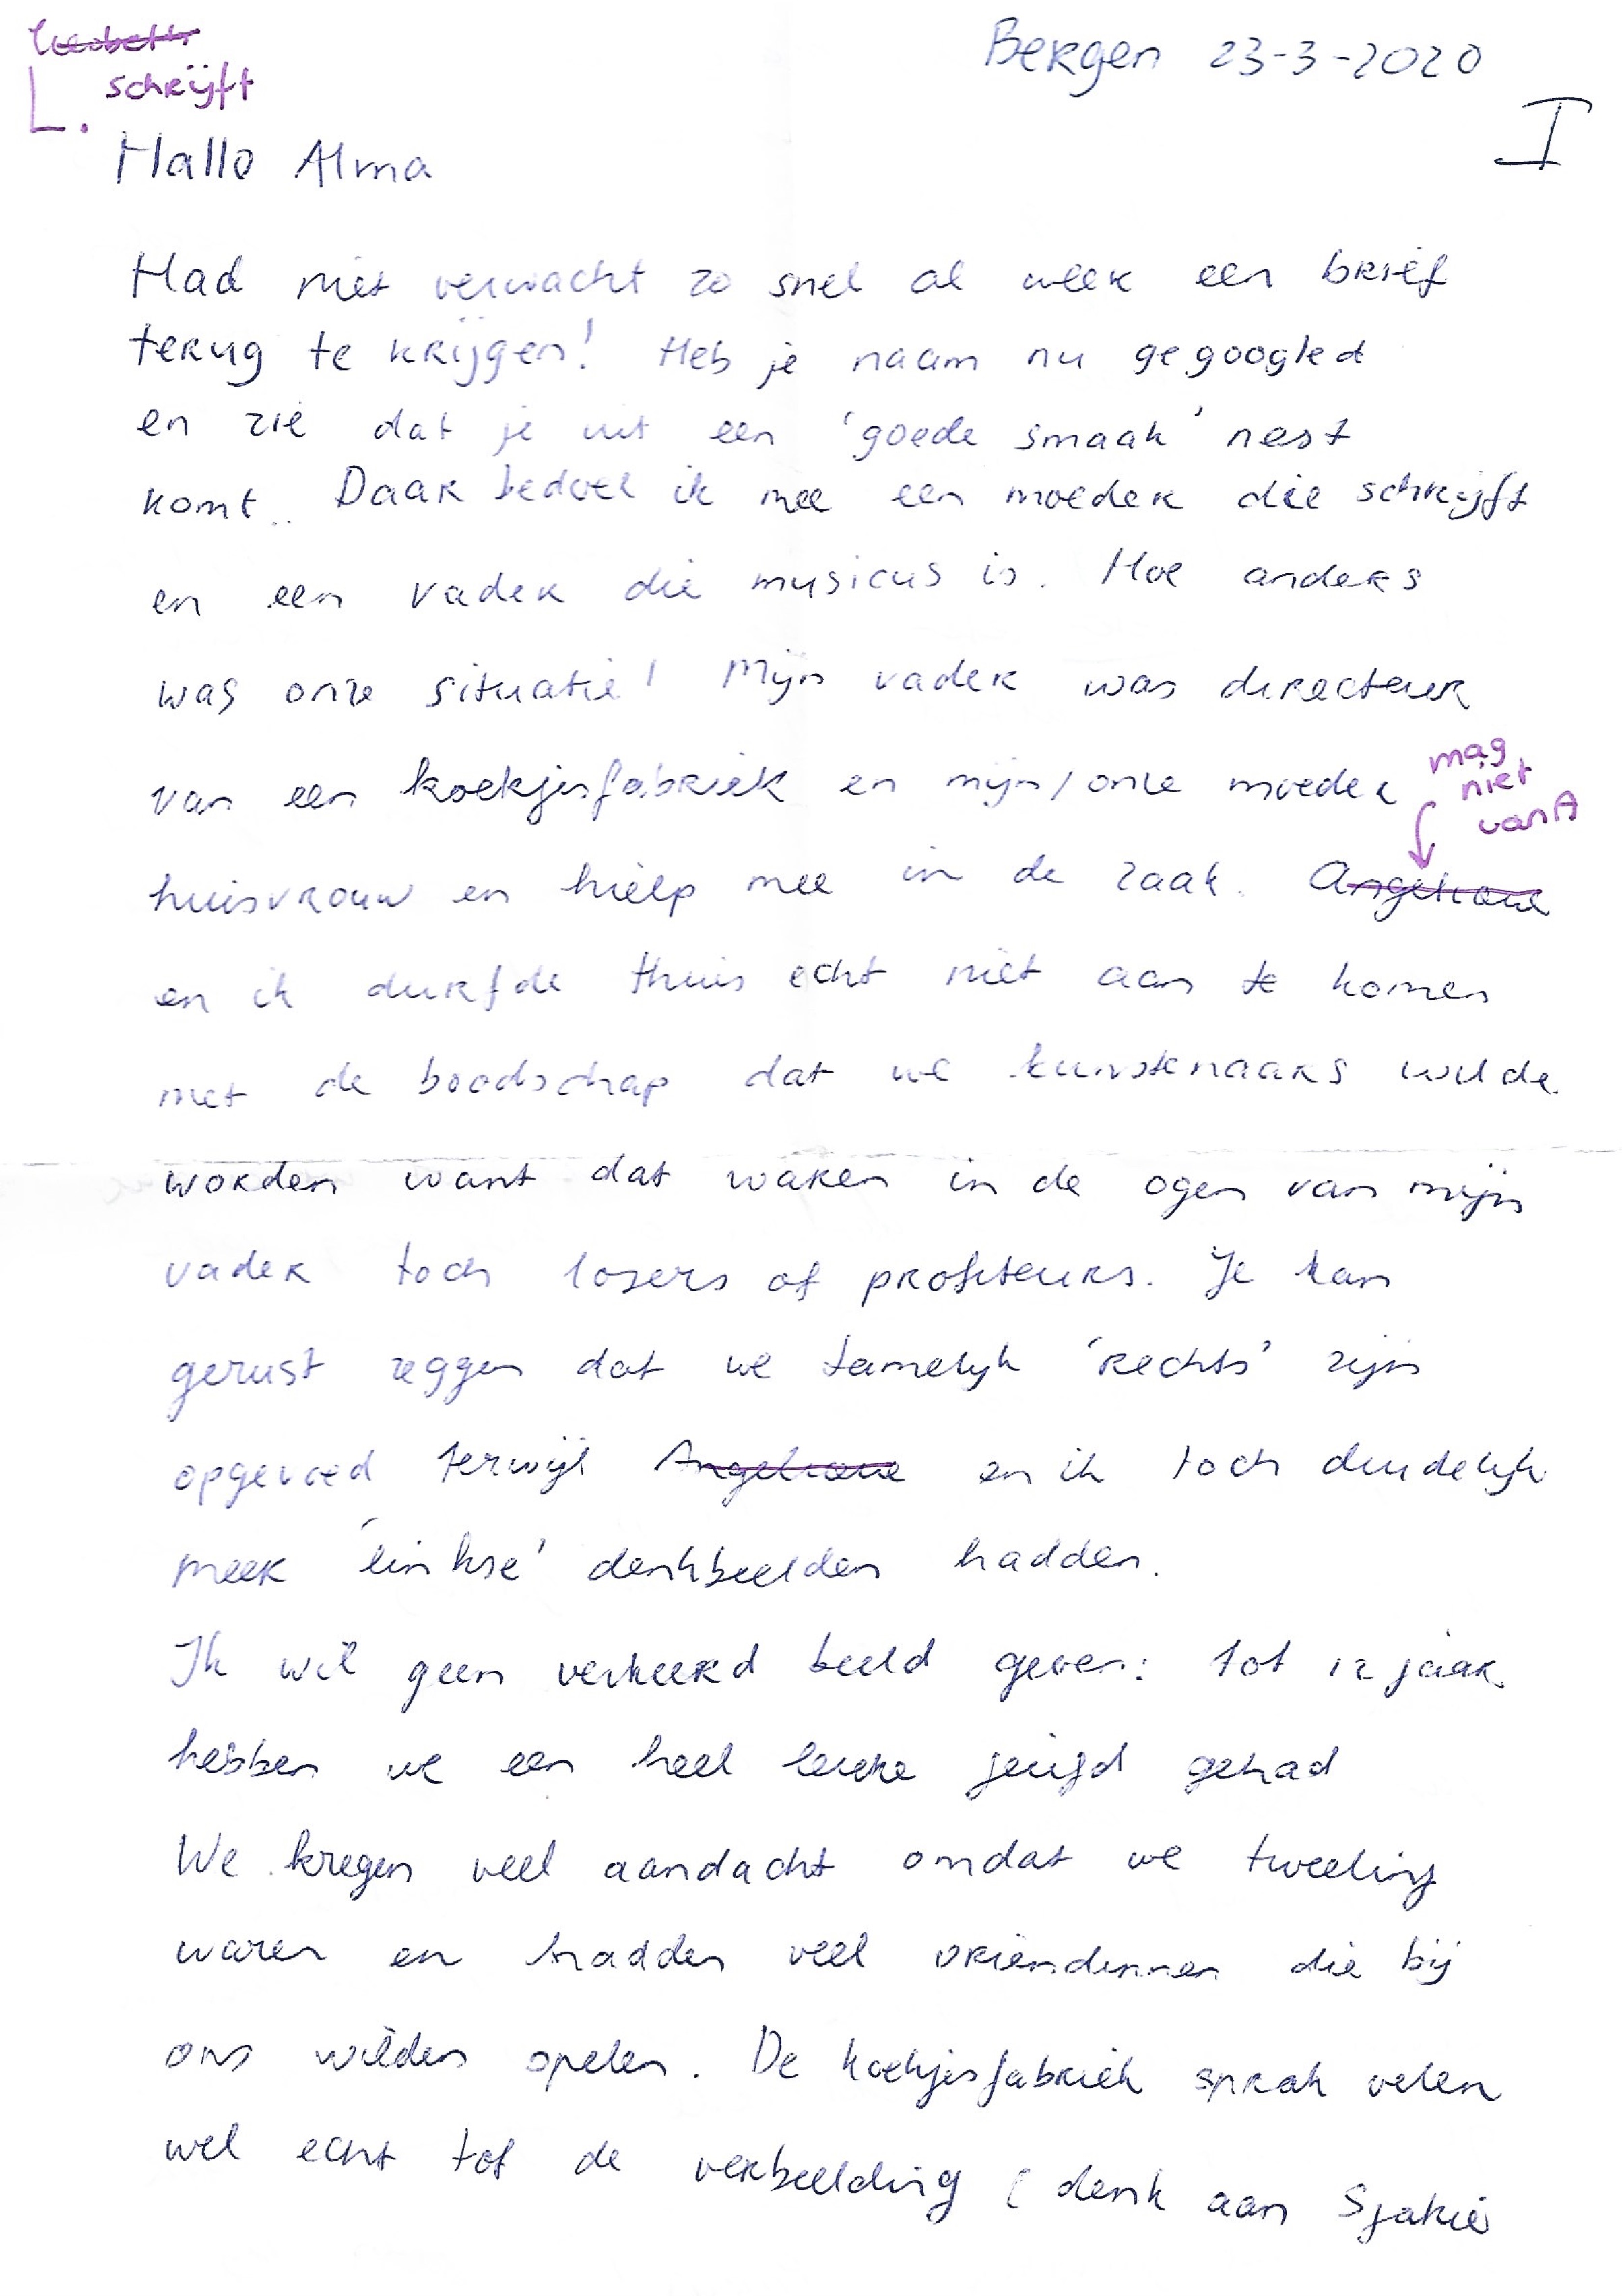 Liesbeth
schrijft
L.
Bergen 23-3-2020
I
Hallo Alma
Had niet verwacht zo snel al weer een brief
terug te krijgen! Heb je naam nu gegoogled
en zie dat je uit een 'goede smaak' nest
komt.. Daar bedoel ik mee een moeder die schrijft
en een vader die musicus is. Hoe anders
was onze situatie! Mijn vader was directeur
van een koekjesfabriek en mijn/onze moeder
mag
niet
van A
huisvrouw en hielp mee in de zaak. Angelique
en ik durfde thuis echt niet aan te komen
met de boodschap dat we kunstenaars wilde
worden want dat waren in de ogen van mijn
vader toch losers of profiteurs. Je kan
gerust zeggen dat we tamelijk 'rechts' zijn
opgevoed terwijl Angelique en ik toch duidelijk
meer 'linkse' denkbeelden hadden.
Ik wil geen verkeerd beeld geven: tot 12 jaar
hebben we een heel leuke jeugd gehad
We kregen veel aandacht omdat we tweeling
waren en hadden veel vriendinnen die bij
ons wilden spelen. De koekjesfabriek sprak velen
wel echt tot de verbeelding (denk aan Sjakie